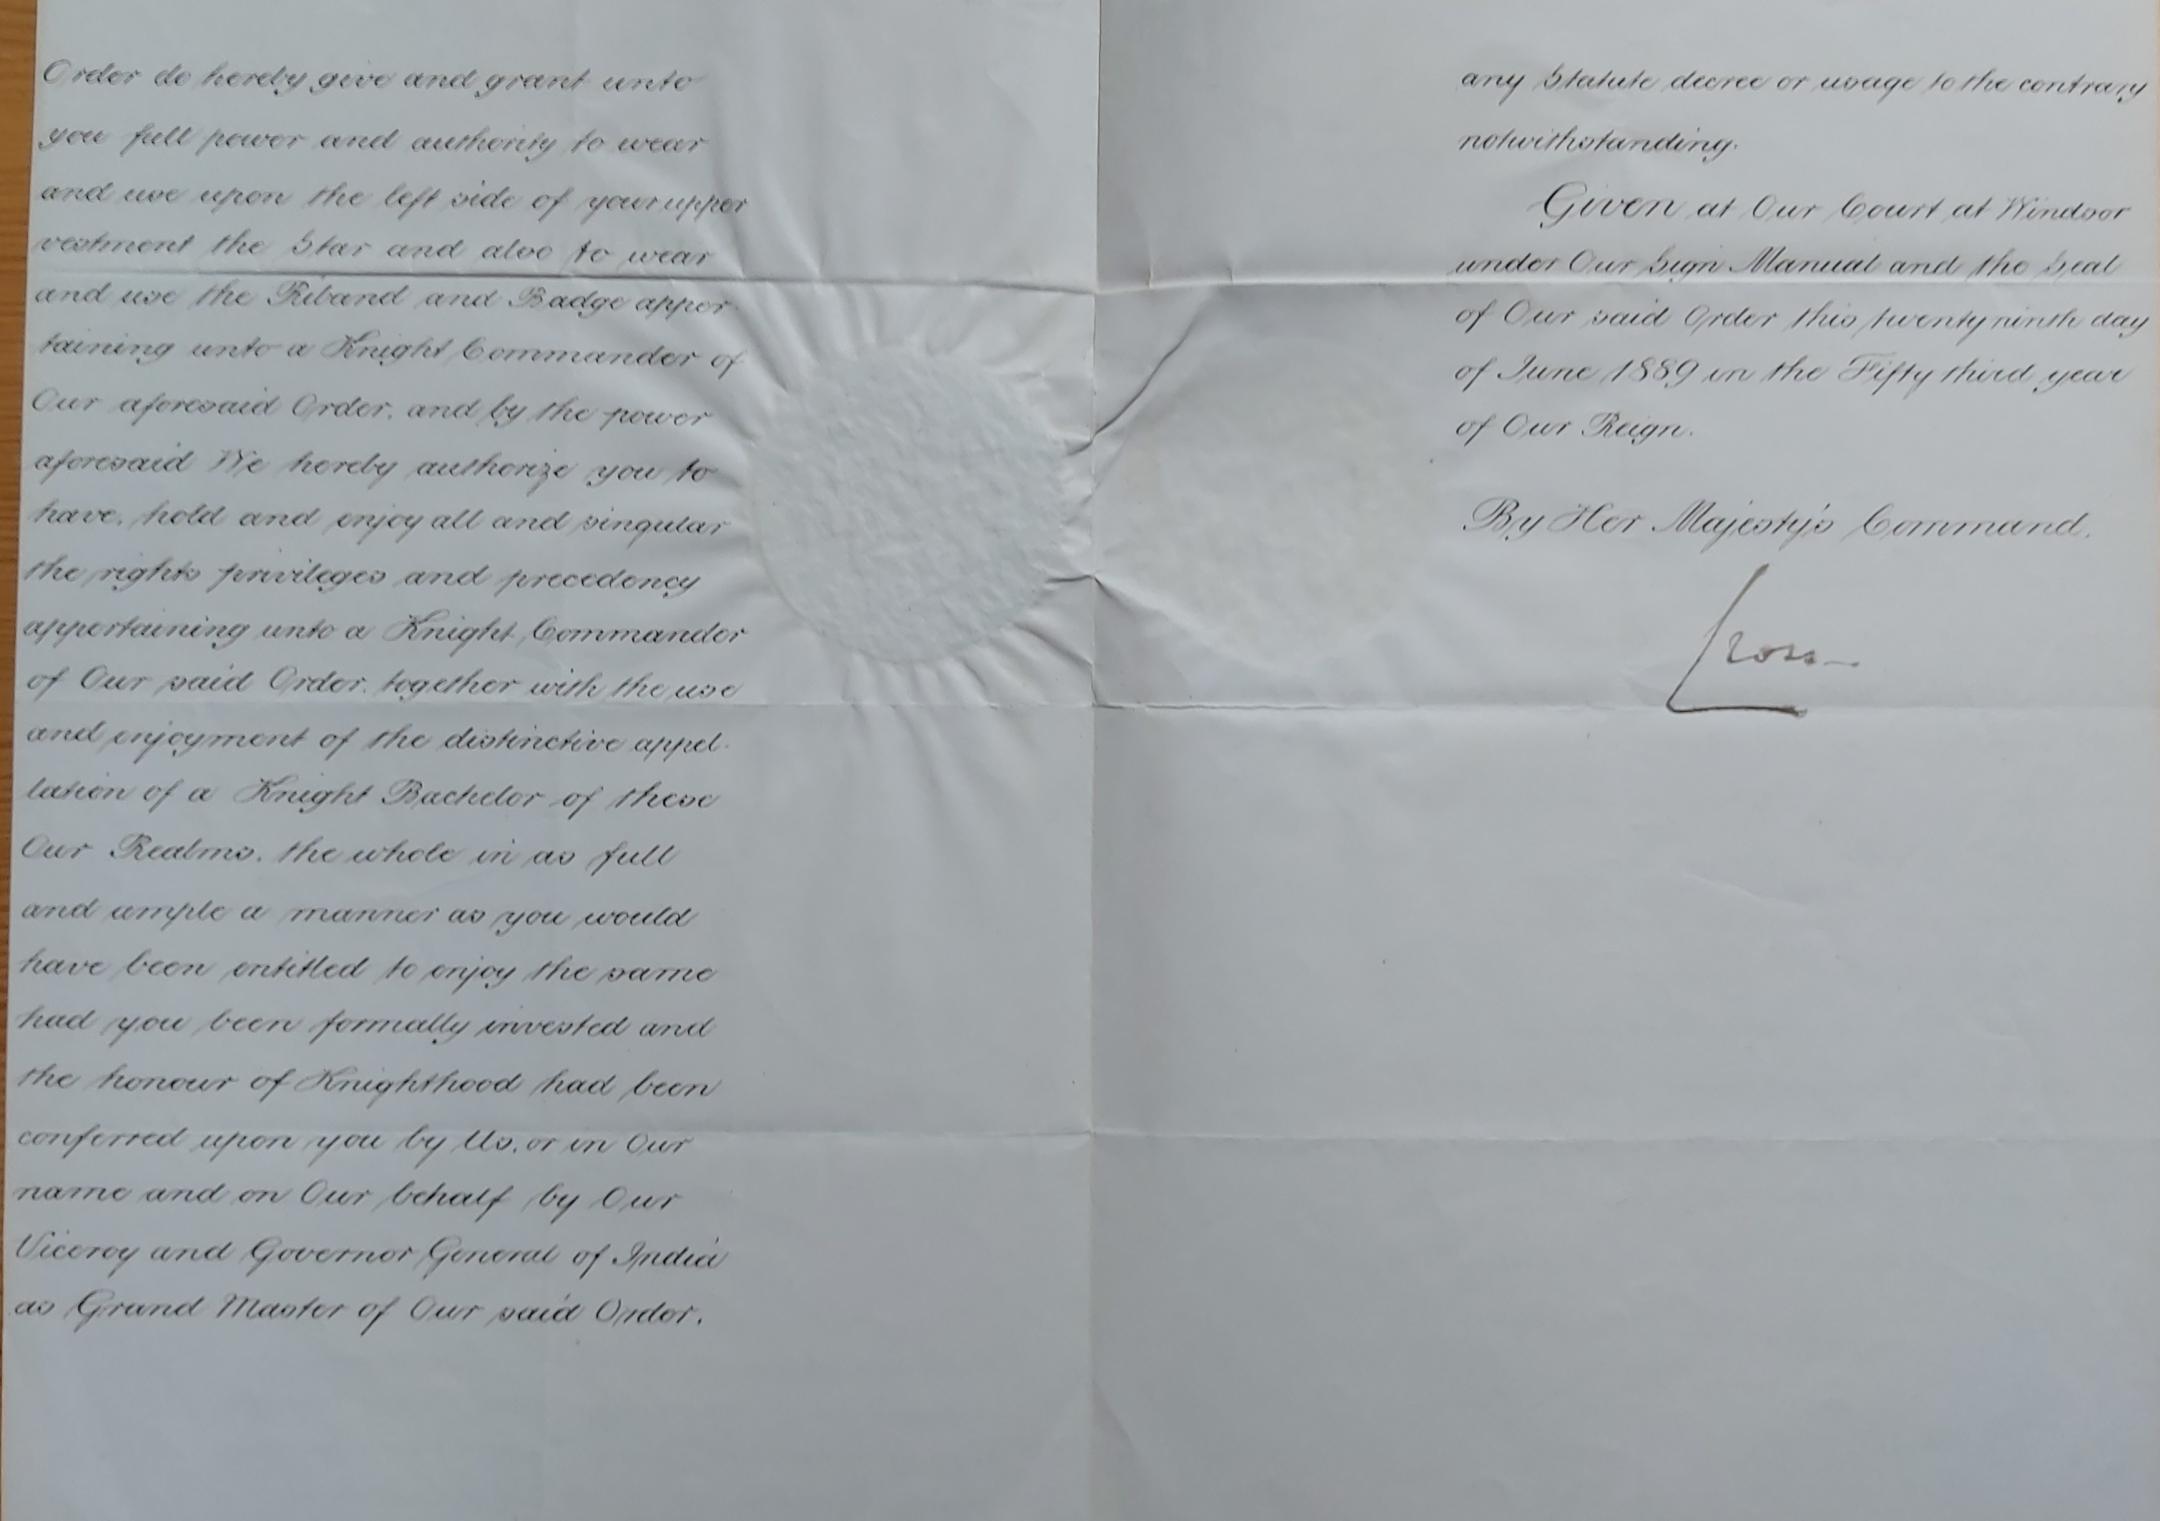 Order do hereby give and grant unto
you full power and authority to wear
and use upon the left side of your upper
vestment the Star and also to wear
and use the Riband and Badge apper-
taining unto a Knight Commander of
Our aforesaid Order, and by the power
aforesaid We hereby authorize you to
have, hold and enjoy all and singular
the rights privileges and precedency
appertaining unto a Knight Commander
of Our said Order, together with the use
and enjoyment of the distinctive appel-
lation of a Knight Bachelor of these
Our Realms, the whole in as full
and ample a manner as you would
have been entitled to enjoy the same
had you been formally invested and
the honour of Knighthood had been
conferred upon you by Us, or in Our
name and on Our behalf by Our
Viceroy and Governor General of India
as Grand Master of Our said Order,
any Statute decree or usage to the contrary
notwithstanding.
Given at Our Court at Windsor
under Our Sign Manual and the Seal
of Our said Order this twenty ninth day
of June 1889 in the Fifty third year
of Our Reign.
By Her Majesty's Command.
Cross